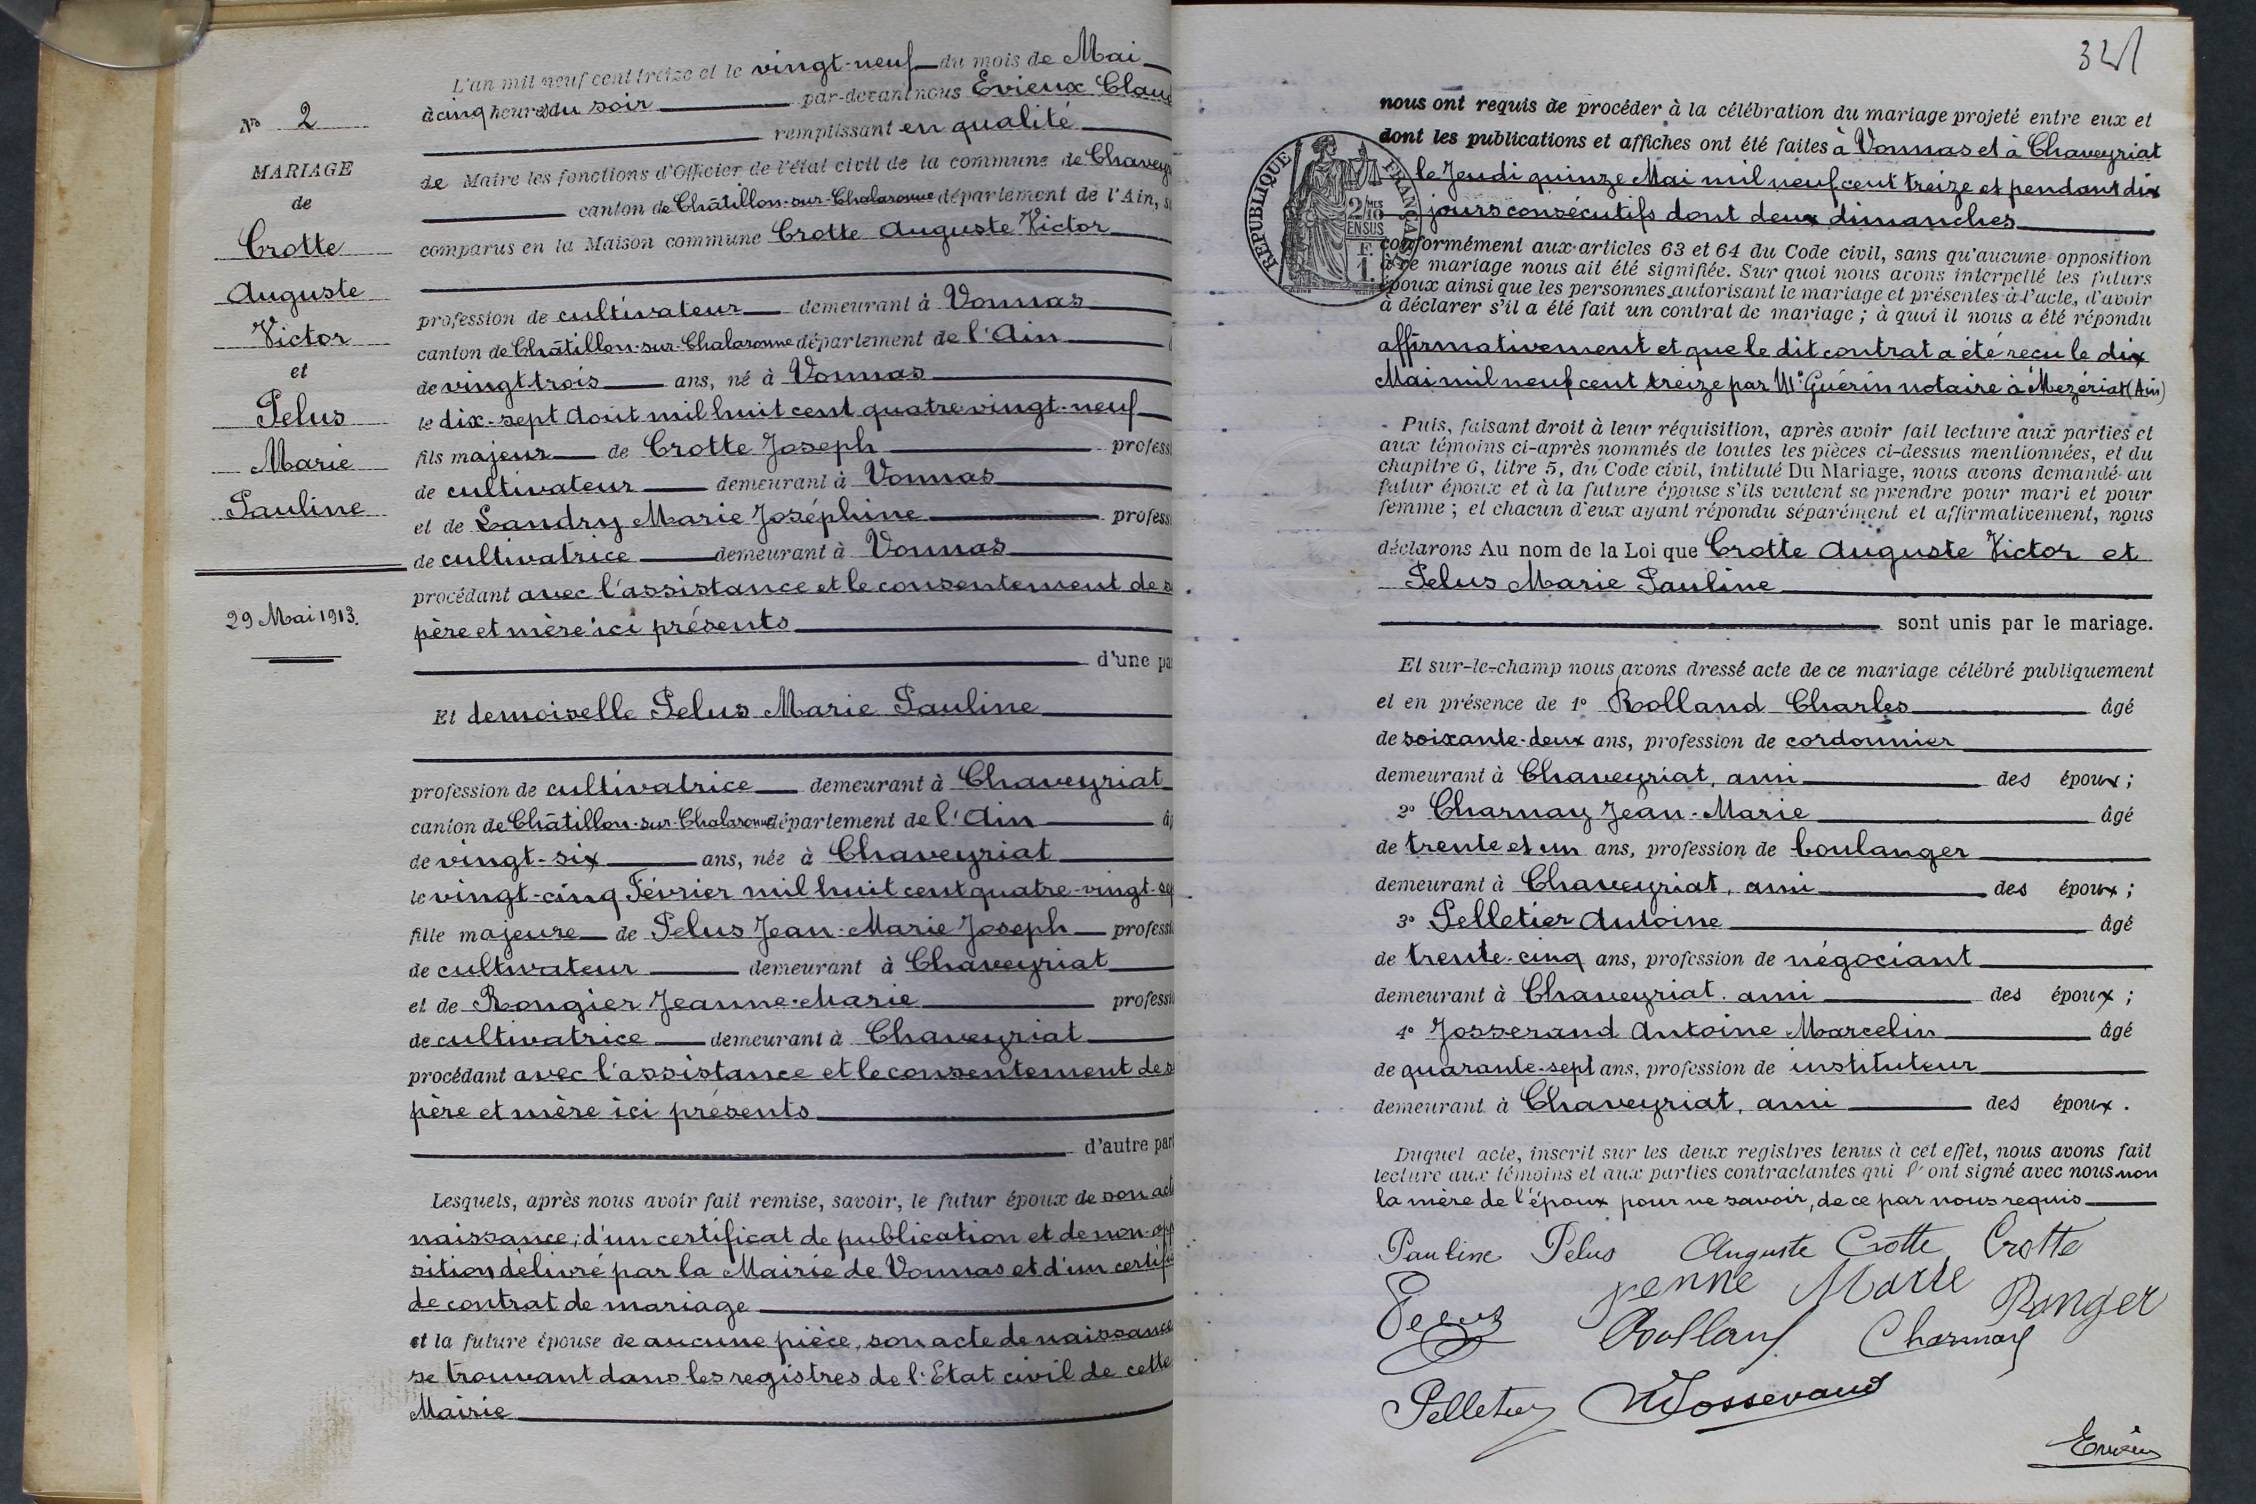 N° 2
MARIAGE
de
Crotte
Auguste
Victor
et
Pelus
Marie
Pauline
29 Mai 1913.
L'an mil neuf cent treize et le vingt-neuf du mois de Mai
à cinq heures du soir par-devant nous Evieux Clau
remplissant en qualité
de Maire les fonctions d'Officier de l'état civil de la commune de Chavey
canton de Châtillon-sur-Chalaronne département de l'Ain, s
comparus en la Maison commune Crotte Auguste Victor
profession de cultivateur demeurant à Vonnas
canton de Châtillon-sur-Chalaronne département de l'Ain
de vingt trois ans, né à Vonnas
le dix-sept Août mil huit cent quatre vingt-neuf
fils majeur de Crotte Joseph profess
de cultivateur demeurant à Vonnas
et de Landry Marie Joséphine profess
de cultivatrice demeurant à Vonnas
procédant avec l'assistance et le consentement de s
père et mère ici présents
d'une pa
Et demoiselle Pelus Marie Pauline
profession de cultivatrice demeurant à Chaveyriat
canton de Châtillon-sur-Chalaronne département de l'Ain â
de vingt-six ans, née à Chaveyriat
le vingt-cinq Février mil huit cent quatre-vingt-sep
fille majeure de Pelus Jean-Marie Joseph professi
de cultivateur demeurant à Chaveyriat
et de Rongier Jeanne-Marie professi
de cultivatrice demeurant à Chaveyriat
procédant avec l'assistance et le consentement de s
père et mère ici présents
d'autre part
Lesquels, après nous avoir fait remise, savoir, le futur époux de son acte
naissance; d'un certificat de publication et de non-opp
sition délivré par la Mairie de Vonnas et d'un certifi
de contrat de mariage
et la future épouse de aucune pièce, son acte de naissance
se trouvant dans les registres de l'Etat civil de cette
Mairie
nous ont requis de procéder à la célébration du mariage projeté entre eux et
dont les publications et affiches ont été faites à Vonnas et à Chaveyriat
le Jeudi quinze Mai mil neuf cent treize et pendant dix
jours consécutifs dont deux dimanches
RÉPUBLIQUE FRANÇAISE
2/10
EN SUS
F.
1.
conformément aux articles 63 et 64 du Code civil, sans qu'aucune opposition
à ce mariage nous ait été signifiée. Sur quoi nous avons interpellé les futurs
époux ainsi que les personnes autorisant le mariage et présentes à l'acte, d'avoir
à déclarer s'il a été fait un contrat de mariage ; à quoi il nous a été répondu
affirmativement et que le dit contrat a été reçu le dix
Mai mil neuf cent treize par Me Guérin notaire à Mezériat (Ain)
Puis, faisant droit à leur réquisition, après avoir fait lecture aux parties et
aux témoins ci-après nommés de toutes les pièces ci-dessus mentionnées, et du
chapitre 6, titre 5, du Code civil, intitulé Du Mariage, nous avons demandé au
futur époux et à la future épouse s'ils veulent se prendre pour mari et pour
femme ; et chacun d'eux ayant répondu séparément et affirmativement, nous
déclarons Au nom de la Loi que Crotte Auguste Victor et
Pelus Marie Pauline
sont unis par le mariage.
Et sur-le-champ nous avons dressé acte de ce mariage célébré publiquement
et en présence de 1° Rolland Charles âgé
de soixante-deux ans, profession de cordonnier
demeurant à Chaveyriat, ami des époux ;
2° Charnay Jean-Marie âgé
de trente et un ans, profession de boulanger
demeurant à Chaveyriat, ami des époux ;
3° Pelletier Antoine âgé
de trente-cinq ans, profession de négociant
demeurant à Chaveyriat. ami des époux ;
4° Josserand Antoine Marcelin âgé
de quarante-sept ans, profession de instituteur
demeurant à Chaveyriat, ami des époux.
Duquel acte, inscrit sur les deux registres tenus à cet effet, nous avons fait
lecture aux témoins et aux parties contractantes qui l'ont signé avec nous non
la mère de l'époux pour ne savoir, de ce par nous requis
Pauline Pelus Auguste Crotte Crotte
Pelus Jenne Marie Ronger
Rolland Charnay
Pelletier Josserand
Evieux